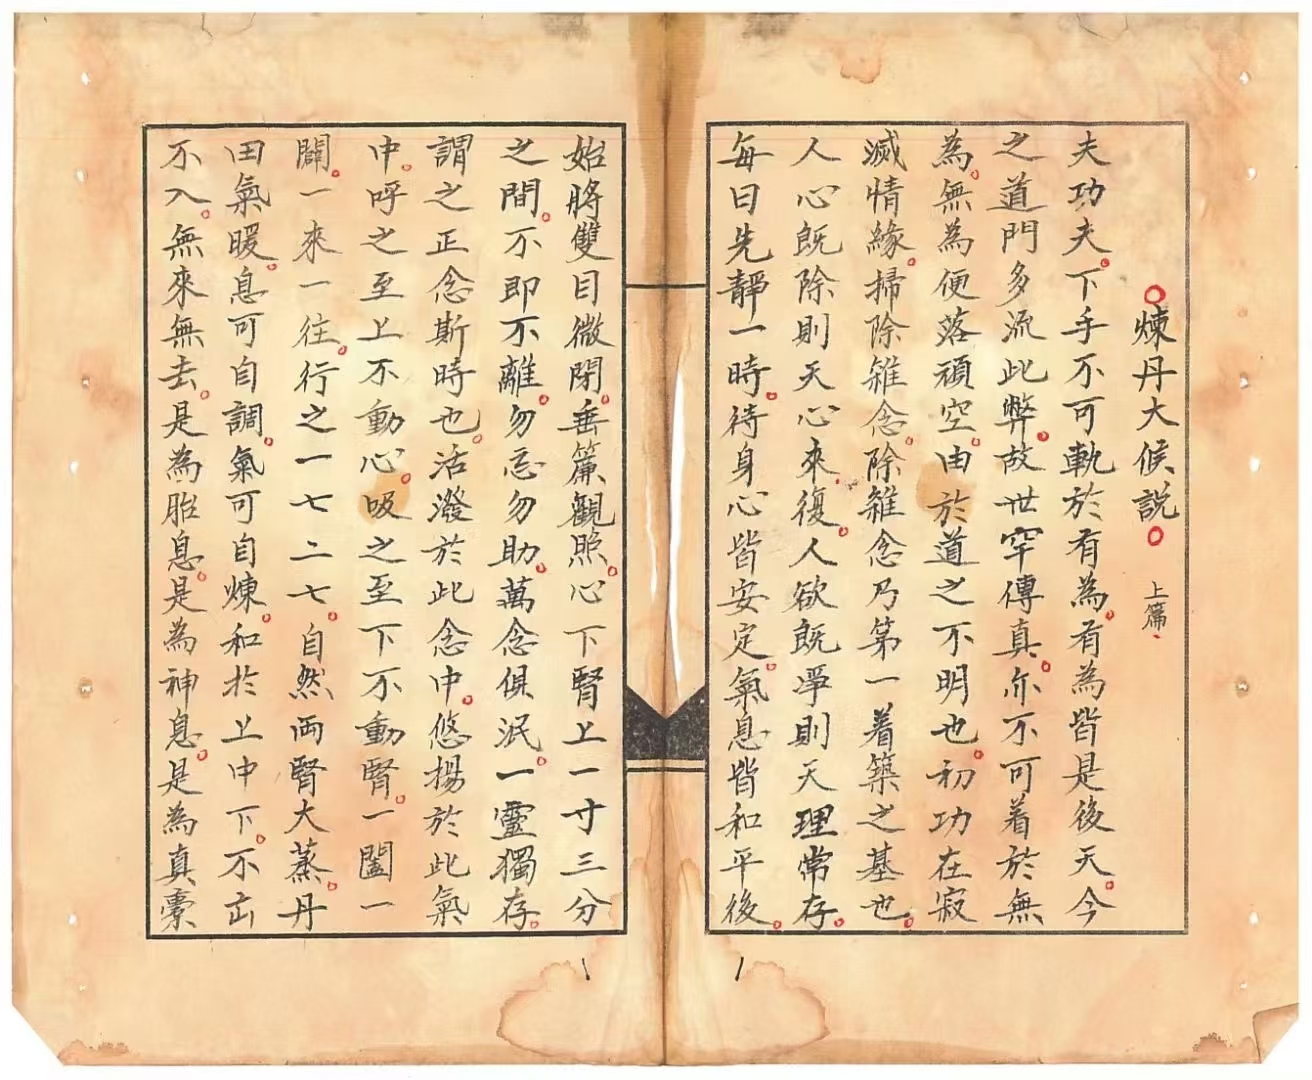 煉丹大候説 上篇
夫功夫下手不可軌於有為有為皆是後天今
之道門多流此弊故世罕傳真亦不可着於無
為無為便落頑空由於道之不明也初功在寂
滅情緣掃除雜念除雜念乃第一着築之基也
人心既除則天心來復人欲既淨則天理常存
每日先靜一時待身心皆安定氣息皆和平後
始將雙目微閉垂簾觀照心下腎上一寸三分
之間不即不離勿忘勿助萬念俱泯一靈獨存
謂之正念斯時也活潑於此念中悠揚於此氣
中呼之至上不動心吸之至下不動腎一闔一
闢一來一往行之一七二七自然両腎大蒸丹
田氣暖息可自調氣可自煉和於上中下不出
不入無來無去是為胎息是為神息是為真橐